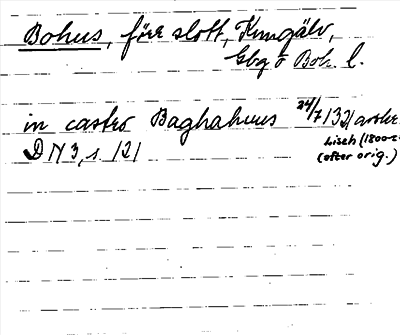 Bohus, förr slott, Kungälv,
Gbg o Boh l.
in castro Baghahuus 24/7 1321 avskr.
Lisch (1800-t
DN 3, s. 121
(efter orig.)